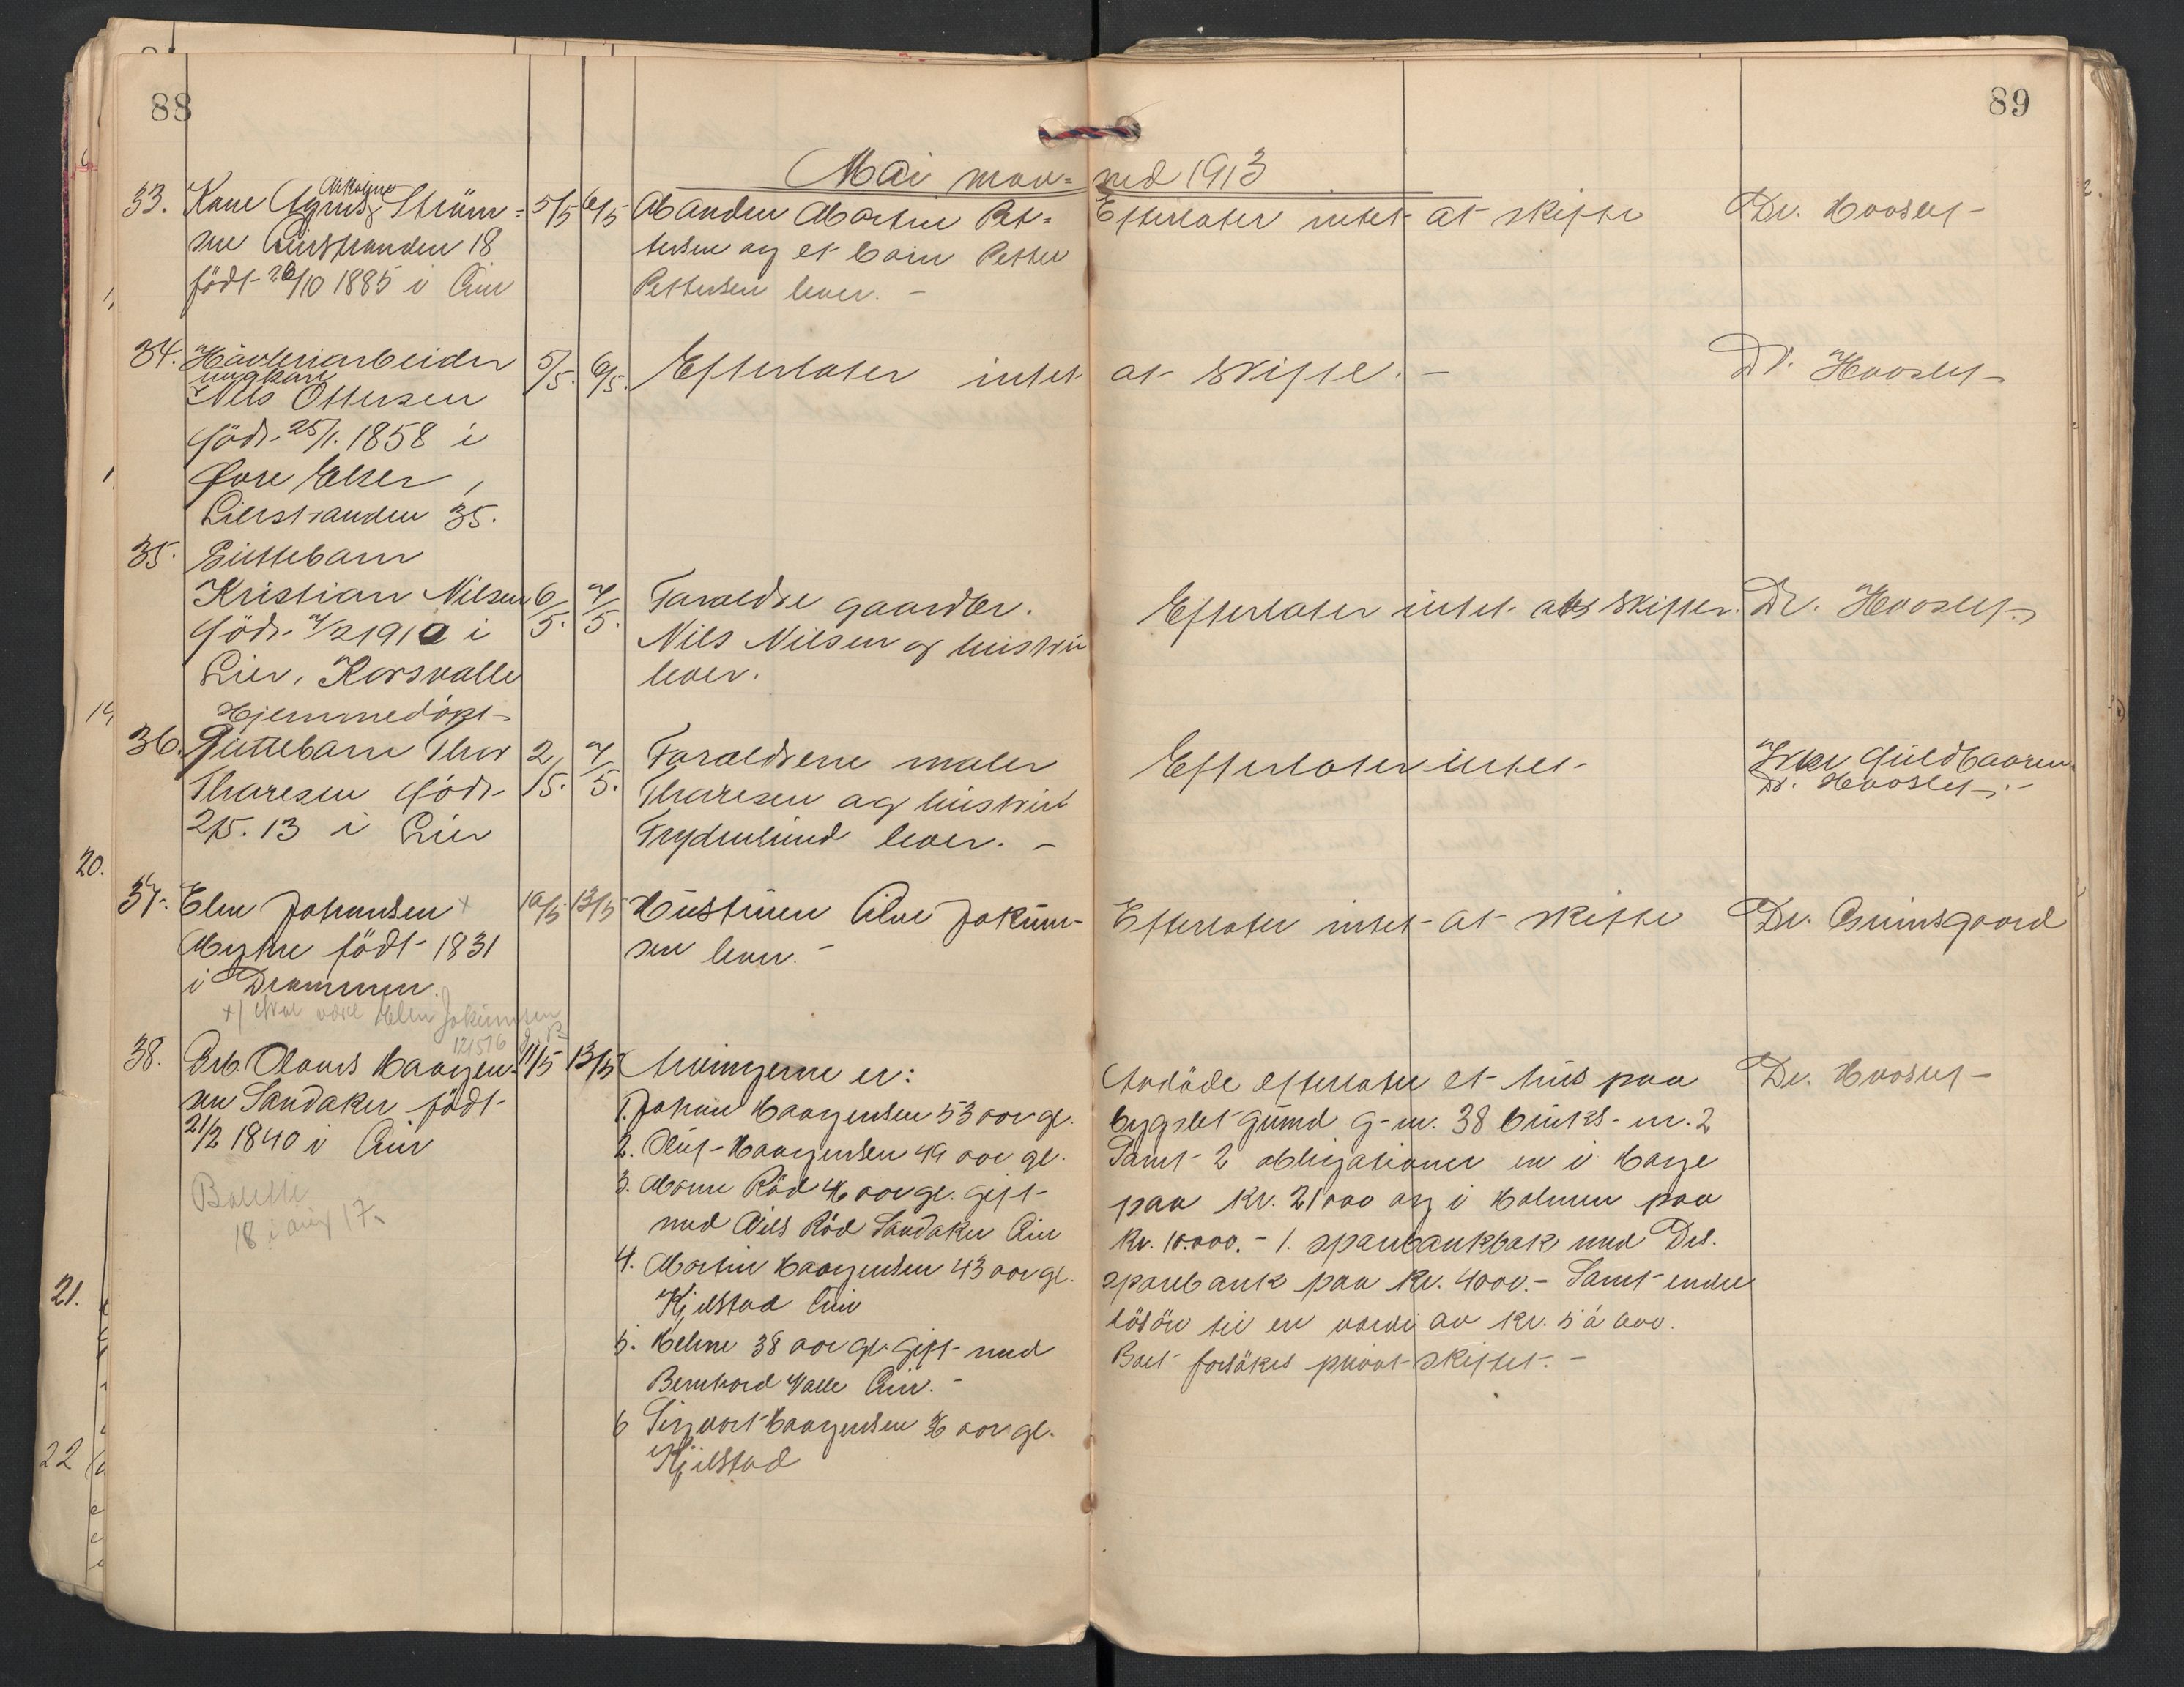 88
89
Mai maaned 1913
33. Kone Agnes Ström=
sne Lierstranden 18
födt 26/10 1885 i Lier
5/5 6/5
Manden Martin Pet=
tersen og et barn Petter
Pettersen lever. -
Efterlater intet at skifte
Dr. Haaslef
34. Hövleriarbeider
ungkarl
Nils Ottersen
född. 25/1. 1858 i
Övre Eker,
Lierstranden 35.
5/5. 6/5.
Efterlater intet at skifte. -
Dr. Haaslef
35. Guttebarn
Kristian Nilsen
född. 4/2 1910 i
Lier, Korsvalle
6/5. 7/5.
Foraeldre gaardbr.
Nils Nilsen og hustru
lever.
Efterlater intet at skifter.
Dr. Haaslef
Hjemmedöpt
36. Guttebarn Thor
Thoresen född
2/5. 13 i Lier
2/5. 7/5.
Foraeldrene maler
Thoresen og hustru
Frydenlund lever. -
Efterlater intet
Dr. Haaslef. -
37. Elen Johansen +
Myhre födt 1831
i Drammen.
+) Skal være Helen Jokumsen
10/5 13/5
Hustruen Line Jokum-
sen lever. -
Efterlater intet at skifte
Dr. Grimsgaard
38. Arb. Olaves Haagen-
sen Sandaker födt
21/2 1840 i Lier
11/5 13/5
Arvingerne er:
1. Johan Haagensen 53 aar gl.
2. Olut Haagensen 49 aar gl.
3. Maren Röd 46 aar gl. gift
med Nils Röd Sandaker Lier
4. Martin Haagensen 43 aar gl.
Kjelstad Lier
5. Helene 38 aar gl. gift med
Bernhard Valle Lier. -
6 Sigvart Haagensen 36 aar gl.
Kjelstad
Avdöde efterlater et hus paa
bygslet grund g-nr. 38 bruks-nr. 2
Samt 2 obligationer en i
paa kr. 21000 og i Holmen paa
kr. 10.000. - 1. sparebankbok med Drs.
sparebank paa kr. 4000. - Samt endel
lösöre til en værdi av kr. 5 à 600.
Boet forsökes privat skiftet. -
Dr. Haaslef
20.
21.
22